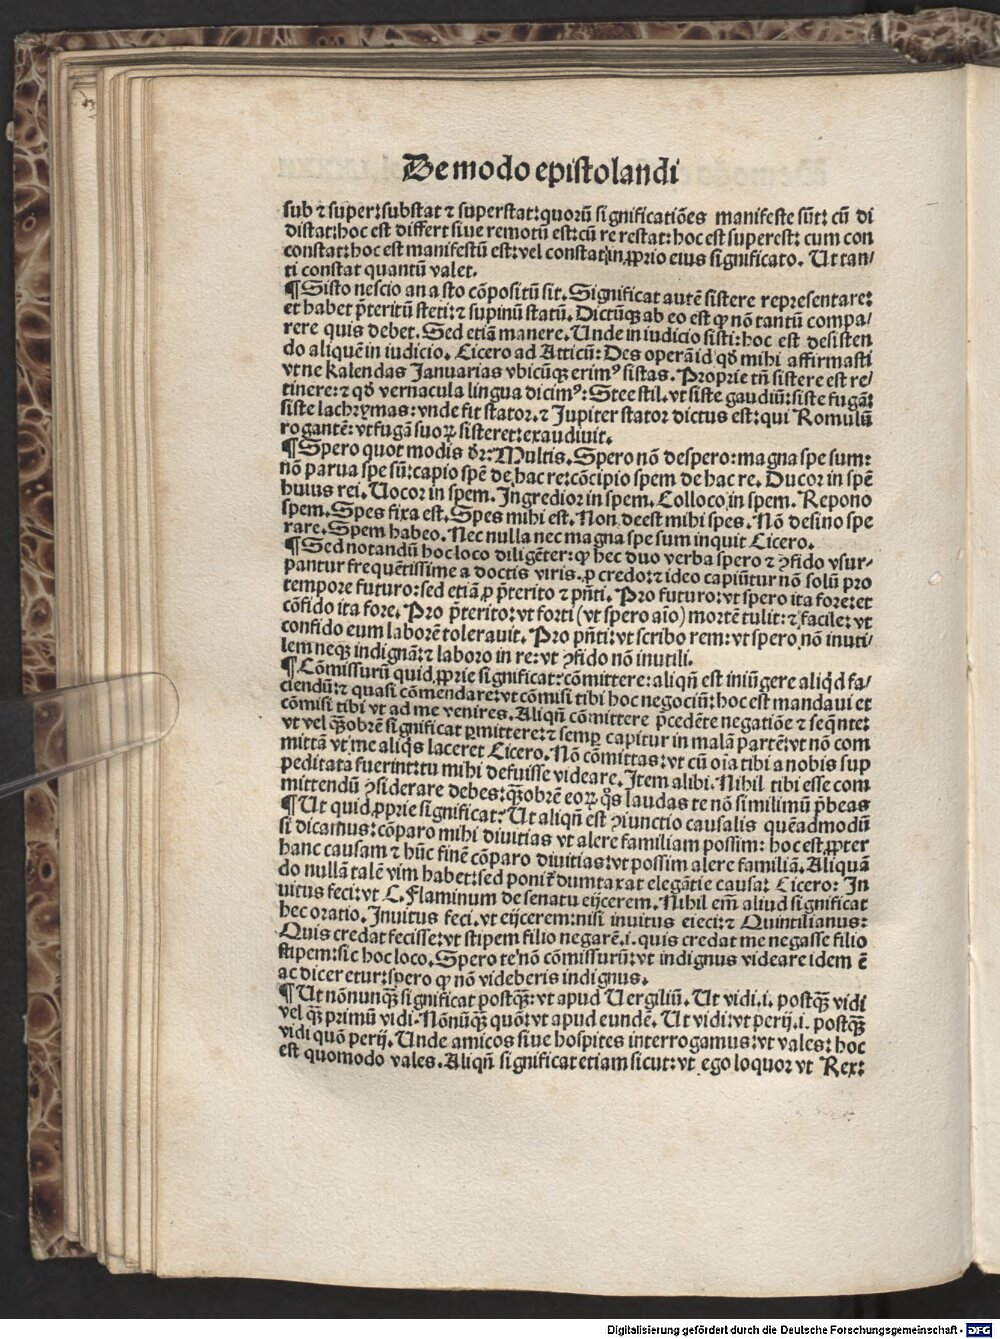 De modo epistolandi
sub ⁊ super: substat ⁊ superstat: quorū significatiōes manifeste sūt: cū di
distat: hoc est differt siue remotū est: cū re restat: hoc est superest: cum con
constat: hoc est manifestū est: vel constat in ꝓprio eius significato. Ut tan/
ti constat quantū valet.
¶ Sisto nescio an a sto cōpositū sit. Significat autē sistere representare:
et habet p̄teritū steti: ⁊ supinū statū. Dictūqꝫ ab eo est ꝙ nō tantū compa/
rere quis debet. Sed etiā manere. Unde in iudicio sisti: hoc est desisten
do aliquē in iudicio. Cicero ad Atticū: Des operā id qđ mihi affirmasti
vt ne kalendas Januarias vbicūqꝫ erimꝰ sistas. Proprie tn̄ sistere est re/
tinere: ⁊ qđ vernacula lingua dicimꝰ: Stee stil. vt siste gaudiū: siste fugā:
siste lachrymas: vnde fit stator. ⁊ Jupiter stator dictus est: qui Romulū
rogantē: vt fugā suoꝝ sisteret: exaudiuit.
¶ Spero quot modis dr̄: Multis. Spero nō despero: magna spe sum:
nō parua spe sū: capio spē de hac re: cōcipio spem de hac re. Ducor in spē
huius rei. Uocor in spem. Ingredior in spem. Colloco in spem. Repono
spem. Spes fixa est. Spes mihi est. Non deest mihi spes. Nō desino spe
rare. Spem habeo. Nec nulla nec magna spe sum inquit Cicero.
¶ Sed notandū hoc loco diligēter: ꝙ hec duo verba spero ⁊ ꝯfido vsur-
pantur frequētissime a doctis viris. ꝓ credo: ⁊ ideo capiūtur nō solū pro
tempore futuro: sed etiā ꝓ p̄terito ⁊ pn̄ti. Pro futuro: vt spero ita fore: et
cōfido ita fore. Pro p̄terito: vt forti (vt spero aīo) mortē tulit: ⁊ facile: vt
confido eum laborē tolerauit. Pro pn̄ti: vt scribo rem: vt spero nō inuti/
lem neqꝫ indignā: ⁊ laboro in re: vt ꝯfido nō inutili.
¶ Cōmissurū quid ꝓprie significat: cōmittere: aliqn̄ est iniūgere aliqd fa/
ciendū: ⁊ quasi cōmendare: vt cōmisi tibi hoc negociū: hoc est mandaui et
cōmisi tibi vt ad me venires. Aliqn̄ cōmittere p̄cedēte negatiōe ⁊ seqn̄te:
vt vel qꝫobrē significat ꝑmittere: ⁊ semꝑ capitur in malā partē: vt nō com
mittā vt me aliqs laceret Cicero. Nō cōmittas: vt cū oīa tibi a nobis sup
peditata fuerint: tu mihi defuisse videare. Item alibi. Nihil tibi esse com
mittendū ꝯsiderare debes: qꝫobrē eoꝝ qōs laudas te nō similimū p̄beas
¶ Ut quid ꝓprie significat: Ut aliqn̄ est ꝯiunctio causalis quēadmodū
si dicamus: cōparo mihi diuitias vt alere familiam possim: hoc est ꝓpter
hanc causam ⁊ hūc finē cōparo diuitias: vt possim alere familiā. Aliquā
do nullā talē vim habet: sed ponit̄ dumtaxat elegātie causa: Cicero: In
uitus feci: vt C. Flaminum de senatu eijcerem. Nihil em̄ aliud significat
hec oratio. Inuitus feci. vt eijcerem: nisi inuitus eieci: ⁊ Quintilianus:
Quis credat fecisse: vt stipem filio negarē. i. quis credat me negasse filio
stipem: sic hoc loco. Spero te nō cōmissurū: vt indignus videare idem ē
ac diceretur: spero ꝙ nō videberis indignus.
¶ Ut nōnunqꝫ significat postqꝫ: vt apud Uergiliū. Ut vidi. i. postqꝫ vidi
vel qꝫ primū vidi. Nōnūqꝫ quō: vt apud eundē. Ut vidi: vt perij. i. postqꝫ
vidi quō perij. Unde amicos siue hospites interrogamus: vt vales: hoc
est quomodo vales. Aliqn̄ significat etiam sicut: vt ego loquor vt Rex:
Digitalisierung gefördert durch die Deutsche Forschungsgemeinschaft - DFG